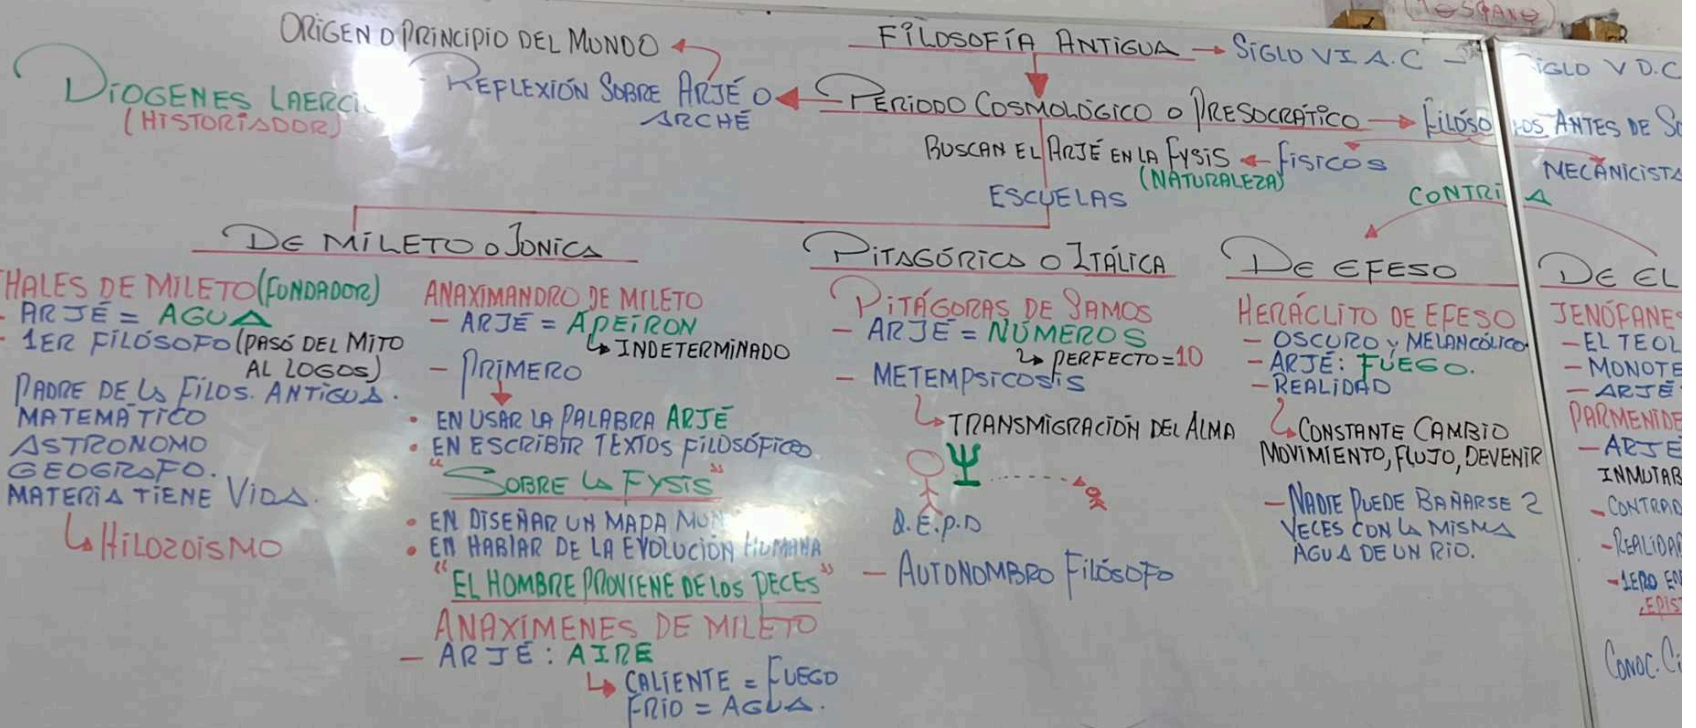 ORIGEN O PRINCIPIO DEL MUNDO
FILOSOFÍA ANTIGUA → SIGLO VI A.C -
SIGLO V D.C
DIOGENES LAERCI
(HISTORIADOR)
REFLEXIÓN SOBRE ARJÉ O
ARCHÉ
PERIODO COSMOLÓGICO O PRESOCRÁTICO → FILÓSO
FOS ANTES DE SO
BUSCAN EL ARJÉ EN LA FYSIS ← FISICOS
(NATURALEZA)
MECANICISTA
ESCUELAS
CONTRI A
DE MILETO O JONICA
THALES DE MILETO (FUNDADOR)
- ARJÉ = AGUA
- 1ER FILÓSOFO (PASÓ DEL MITO
AL LOGOS)
PADRE DE LA FILOS. ANTIGUA.
MATEMÁTICO
ASTRONOMO
GEOGRAFO.
MATERIA TIENE VIDA.
↳ HILOZOISMO
ANAXIMANDRO DE MILETO
- ARJÉ = APEIRON
↳ INDETERMINADO
- PRIMERO
• EN USAR LA PALABRA ARJÉ
• EN ESCRIBIR TEXTOS FILOSÓFICO
"SOBRE LA FYSIS"
• EN DISEÑAR UN MAPA MUN
• EN HABLAR DE LA EVOLUCIÓN HUMANA
"EL HOMBRE PROVIENE DE LOS PECES"
ANAXIMENES DE MILETO
- ARJÉ: AIRE
↳ CALIENTE = FUEGO
FRIO = AGUA.
PITAGÓRICA O ITÁLICA
PITÁGORAS DE SAMOS
- ARJÉ = NÚMEROS
↳ PERFECTO = 10
- METEMPSICOSIS
↳ TRANSMIGRACIÓN DEL ALMA
Ψ
Q.E.P.D
- AUTONOMBRO FILÓSOFO
DE EFESO
HERÁCLITO DE EFESO
- OSCURO Y MELANCÓLICO
- ARJÉ: FUEGO.
- REALIDAD
↳ CONSTANTE CAMBIO
MOVIMIENTO, FLUJO, DEVENIR
- NADIE PUEDE BAÑARSE 2
VECES CON LA MISMA
AGUA DE UN RIO.
DE EL
JENÓFANES
- EL TEOL
- MONOTE
- ARJÉ
PARMENIDE
- ARJÉ
INMUTAB
- CONTRAD
- REALIDAD
- 1ERO EN
EPIST
CONOC. CI